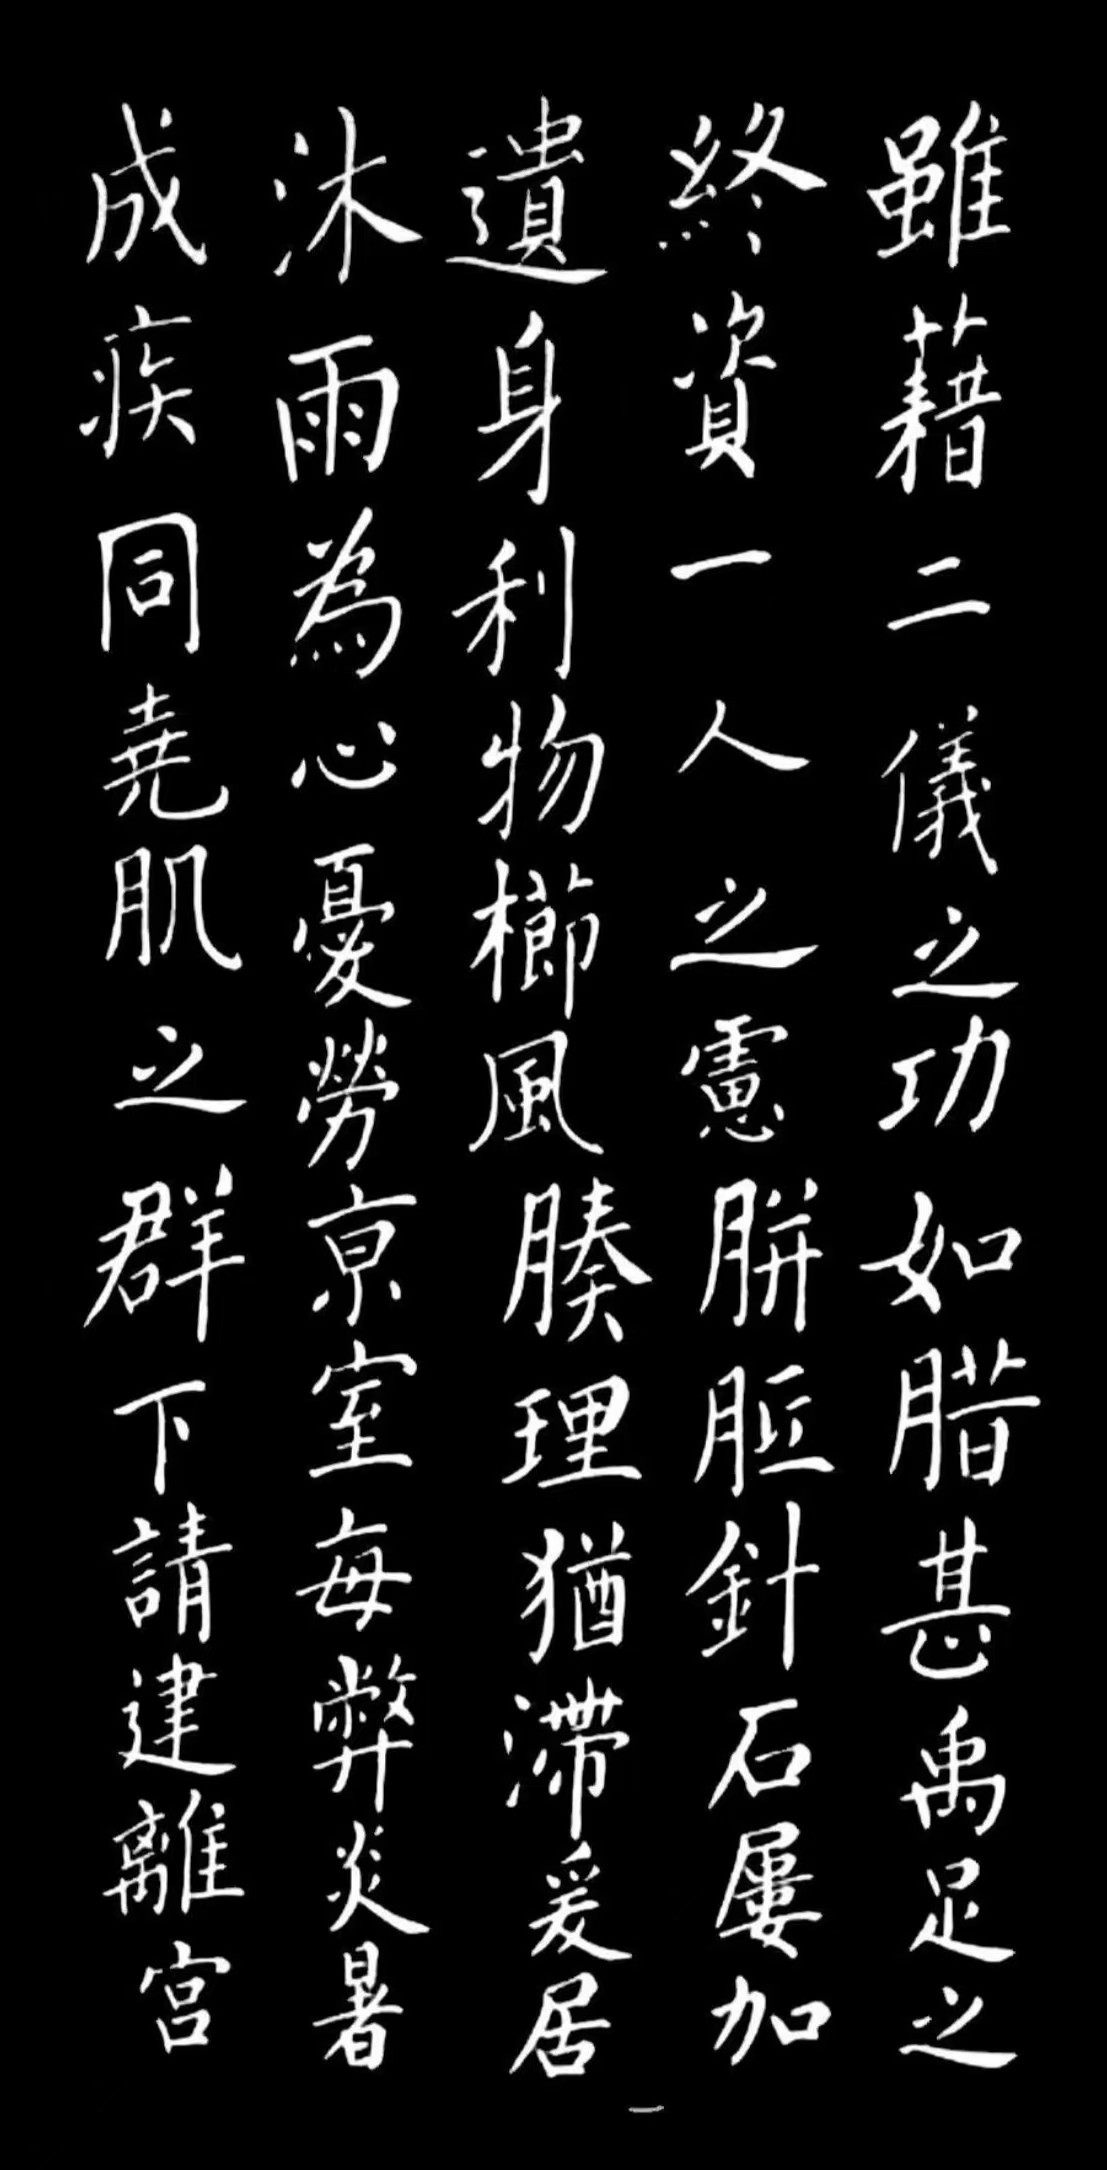 雖藉二儀之功如腊甚禹足之
終資一人之慮胼胝針石屢加
遺身利物櫛風腠理猶滯爰居
沐雨為心憂勞亰室每弊炎暑
成疾同堯肌之群下請建離宮